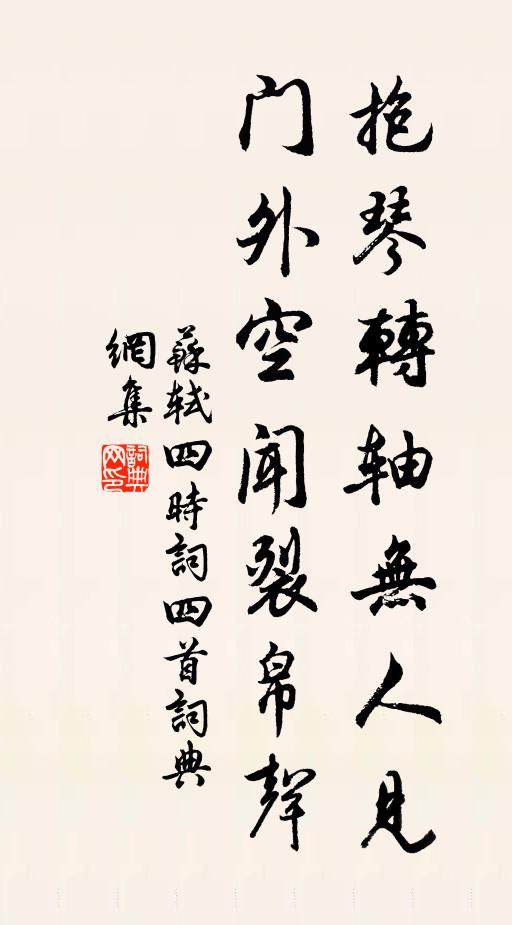 抱琴轉軸無人見
门外空闻裂帛聲
蘇軾四時詞四首詞典
網集
詞典
网印